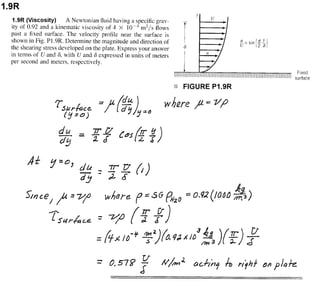 1.9R
1.9R (Viscosity) A Newtonian fluid having a specific grav-
ity of 0.92 and a kinematic viscosity of 4 × 10⁻⁴ m²/s flows
past a fixed surface. The velocity profile near the surface is
shown in Fig. P1.9R. Determine the magnitude and direction of
the shearing stress developed on the plate. Express your answer
in terms of U and δ, with U and δ expressed in units of meters
per second and meters, respectively.
U
y
δ
u
u/U = sin (π/2 y/δ)
Fixed
surface
FIGURE P1.9R
τ surface (y=0) = μ (du/dy) y=0 where μ = νρ
du/dy = π/2 U/δ cos (π/2 y/δ)
At y=0, du/dy = π/2 U/δ (1)
Since, μ = νρ where ρ = SG ρH₂O = 0.92 (1000 kg/m³)
τ surface = νρ (π/2 U/δ)
= (4×10⁻⁴ m²/s)(0.92×10³ kg/m³)(π/2) U/δ
= 0.578 U/δ N/m² acting to right on plate